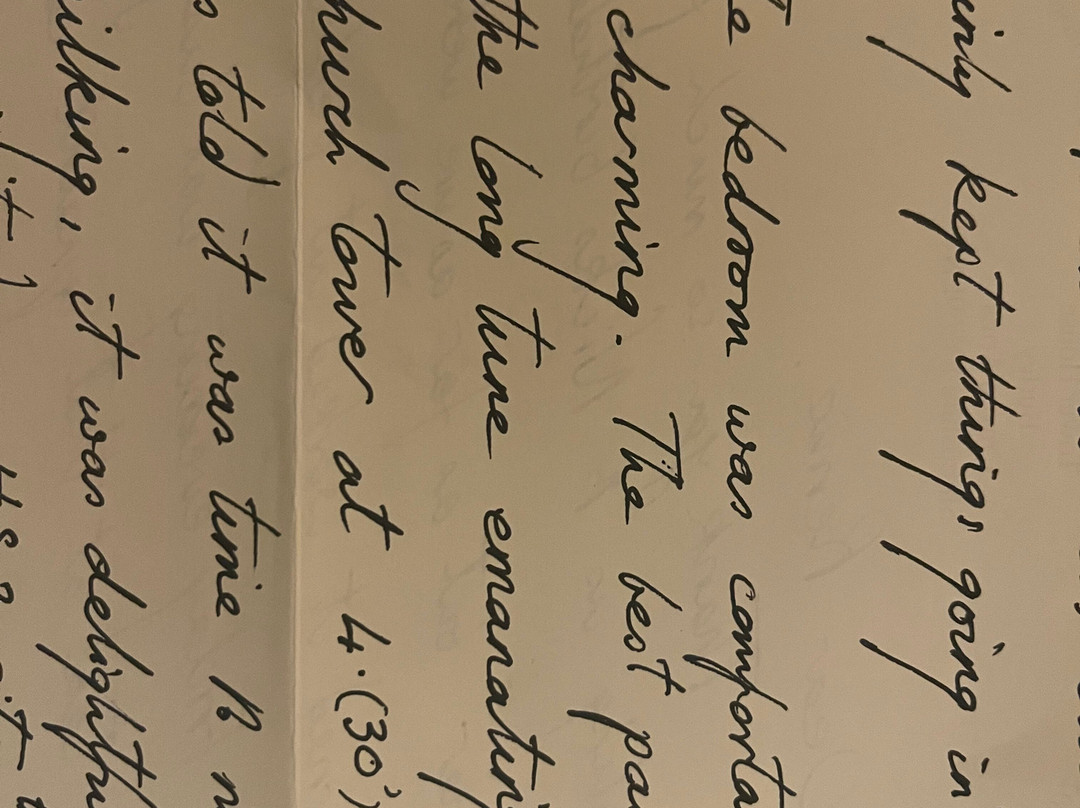 inly kept things going in
e bedroom was comforta
charming. The best pa
the long tune emanating
hurch tower at 4.(30)
s told it was time n
ilking, it was delightfu
it